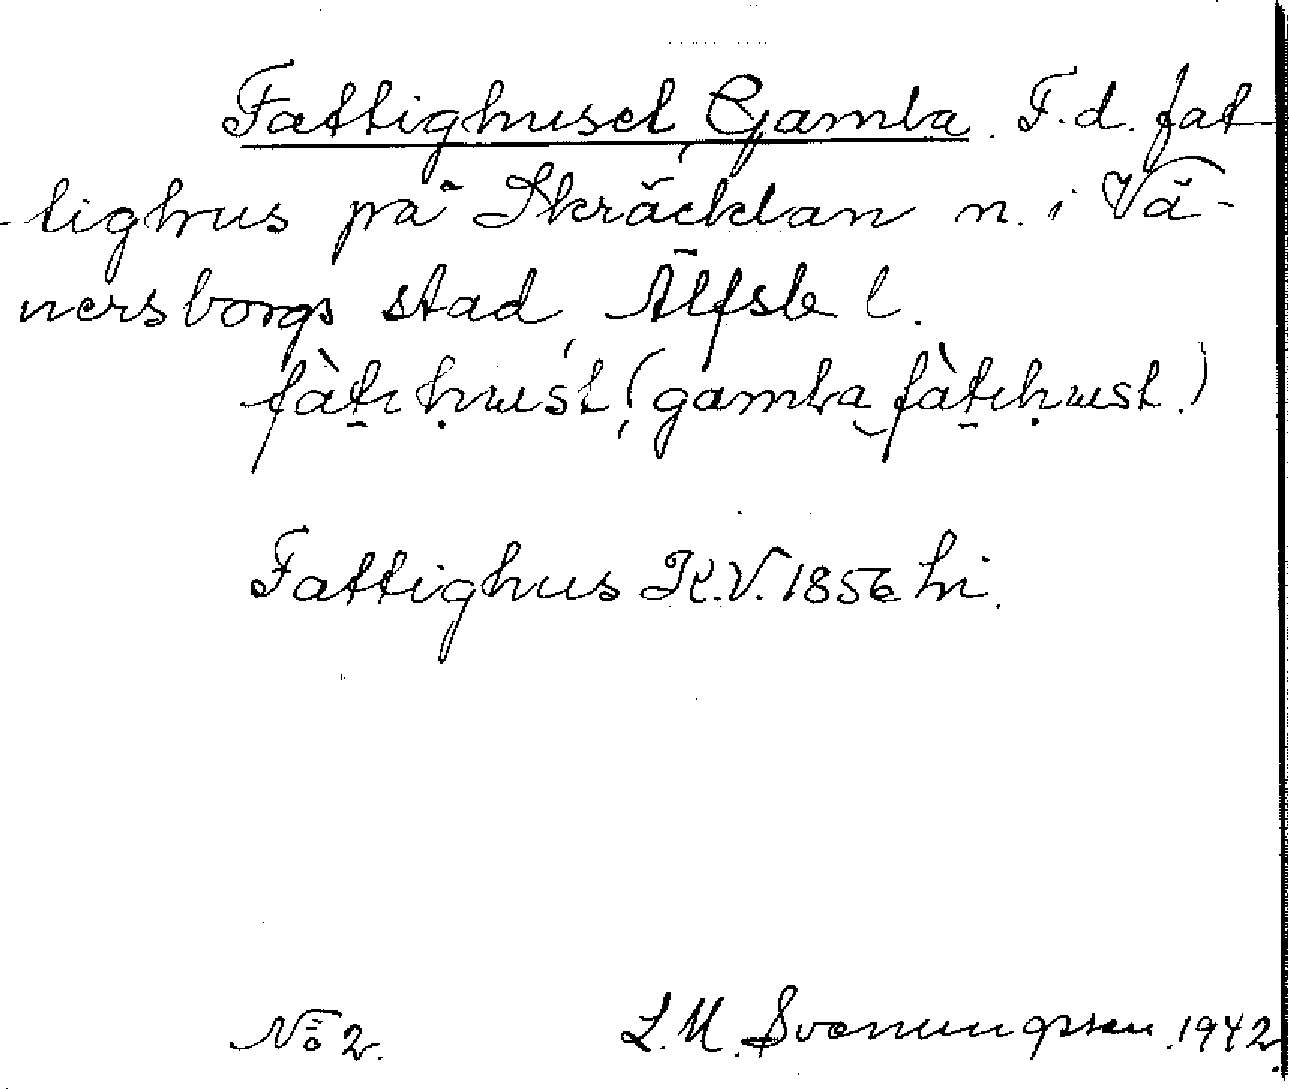 Fattighuset, Gamla. F.d. fat-
-tighus på Skräcklan n. i Vä-
nersborgs stad, Älfsb l.
fàtihust, (gamla fàtihust.)
Fattighus K.V. 1856 hi.
No 2. L.M. Svenungsson. 1942